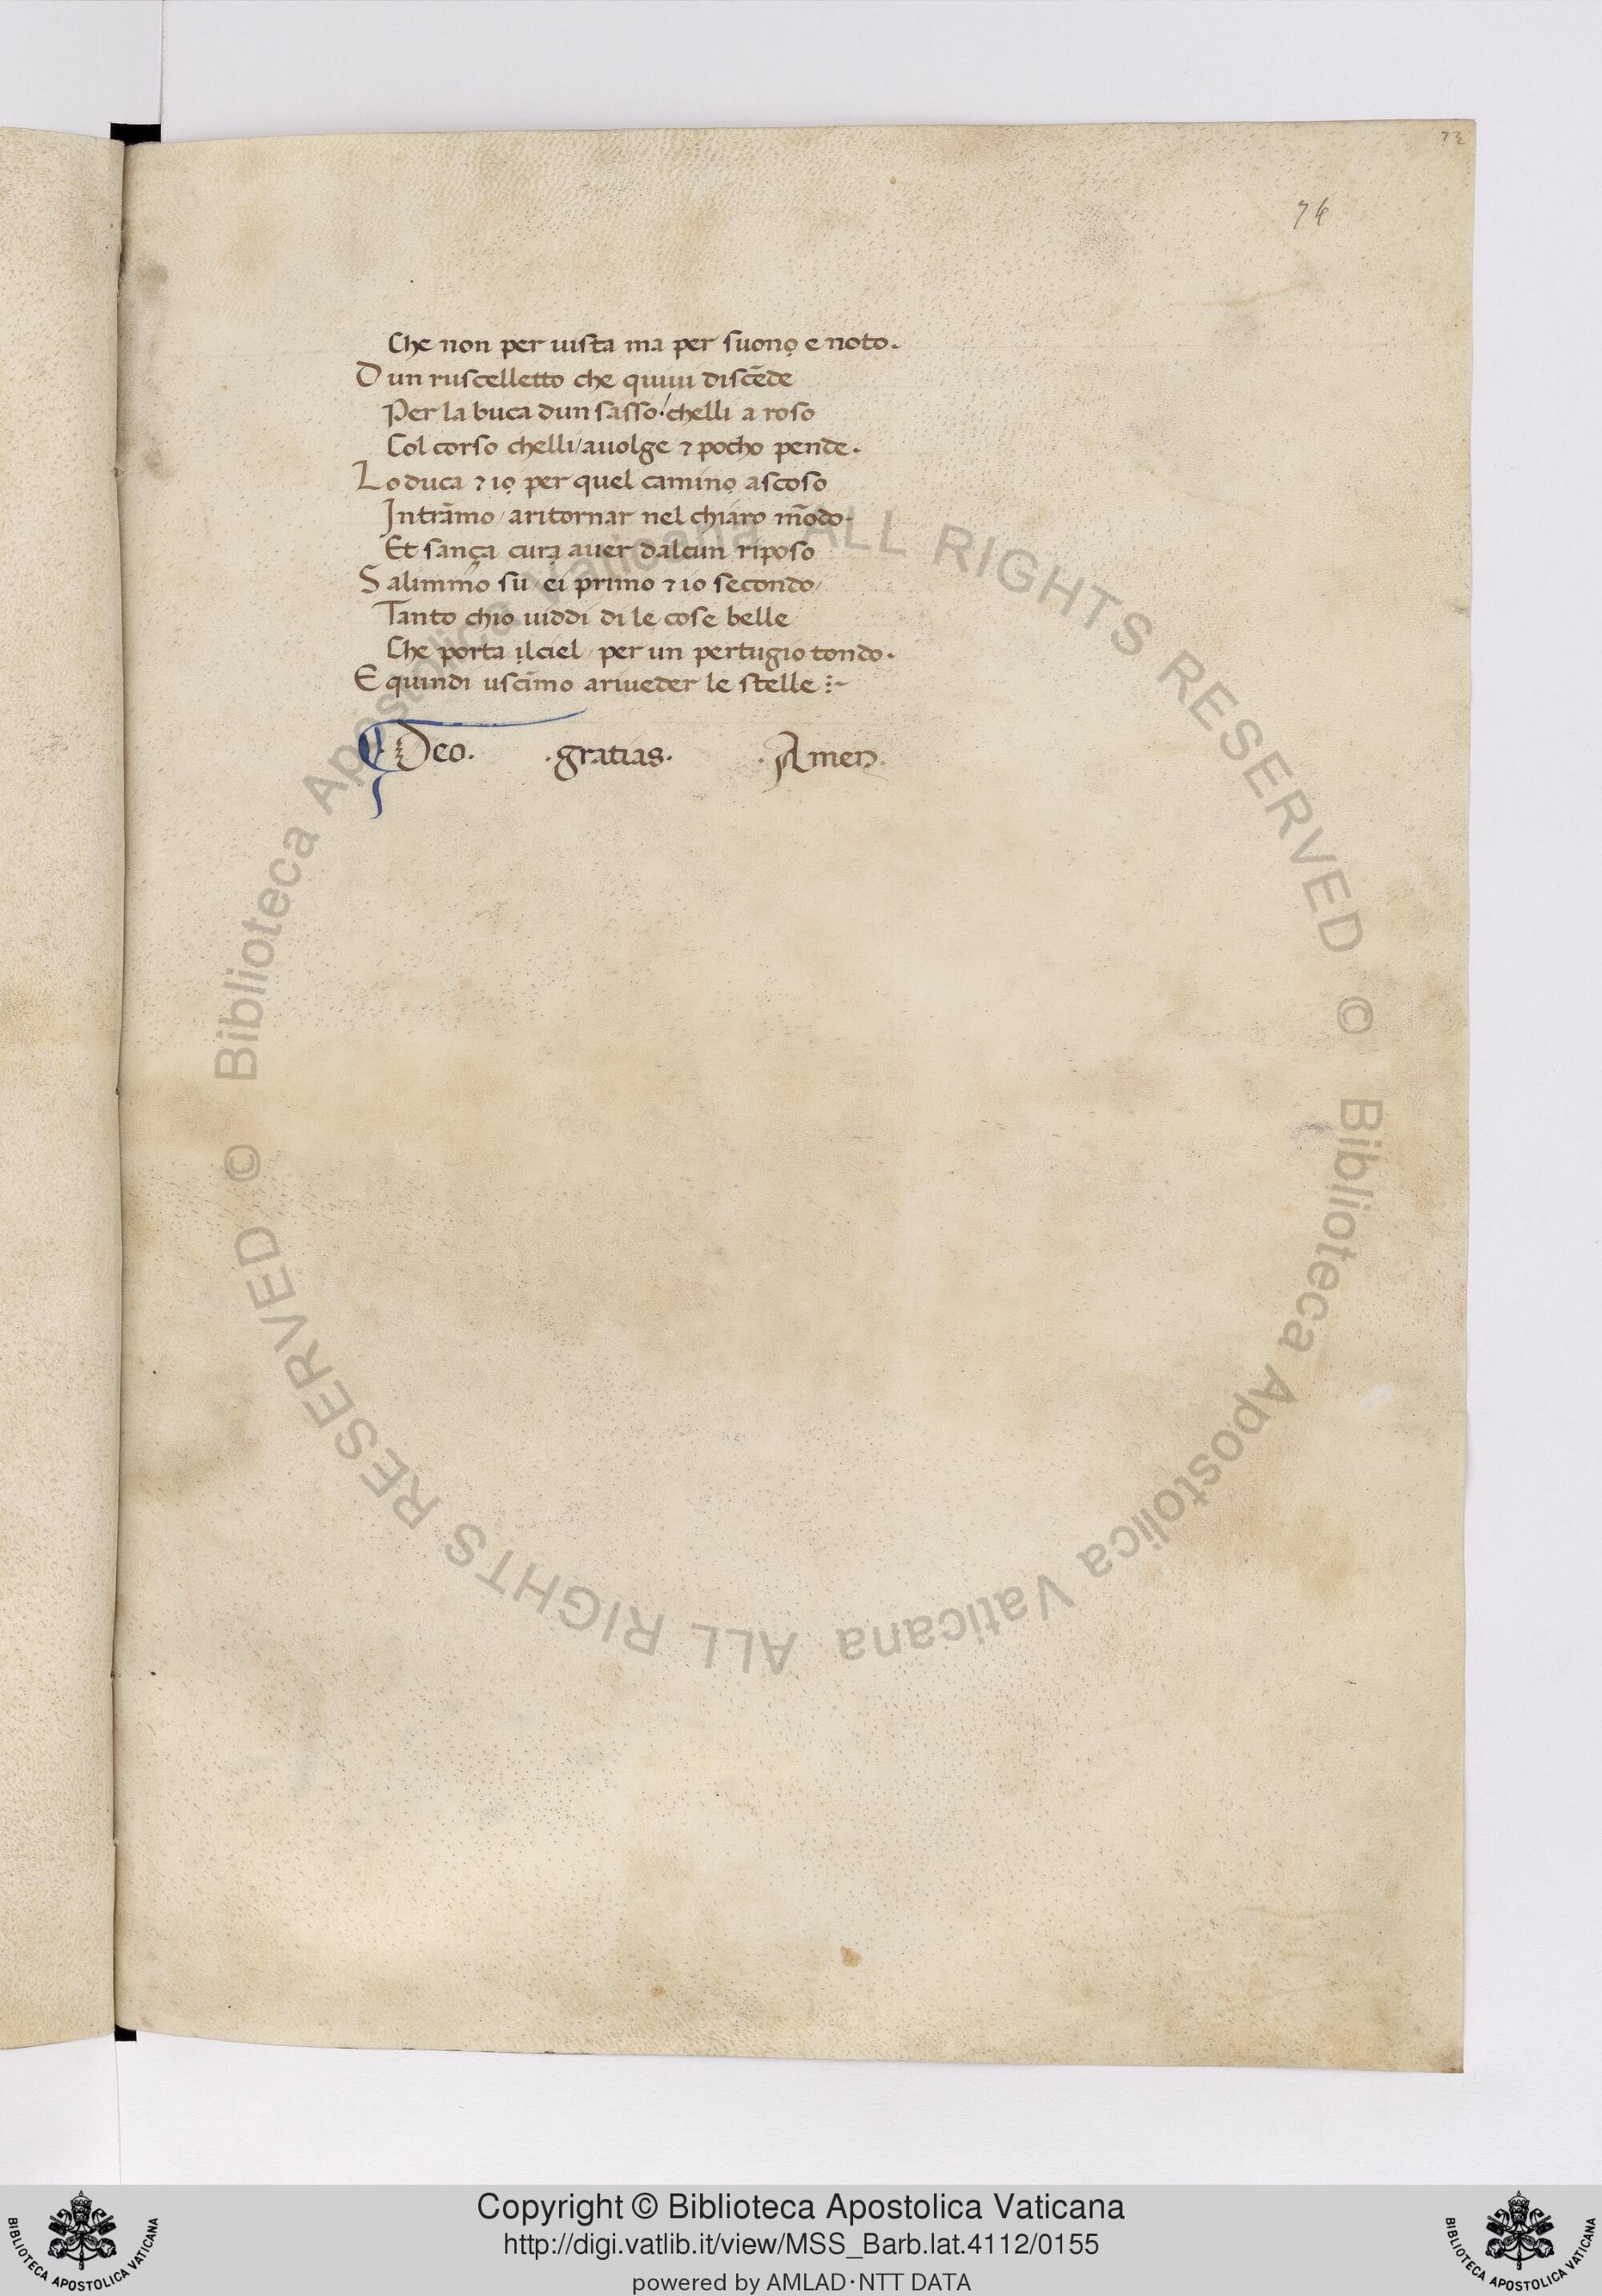 72
74
Che non per uista ma per suonọ e noto.
D un ruscelletto che quiui discēde
Per la buca dun sasso chelli a roso
Col corso chelli/auolge ⁊ pocho pende.
L o duca ⁊ ıọ per quel caminọ ascoso
Intrāmo/aritornar nel chiaro mōdo.
Et sança curạ auer dalcun riposo
S alimmo su ei primo ⁊ io secondo/
Tanto chio uiddi di le cose belle
Che porta ịl ciel/per un pertugio tondo.
E quindi uscīmo ariueder le stelle
Deo. .gratias. .Amen.
© Biblioteca Apostolica Vaticana ALL RIGHTS RESERVED
© Biblioteca Apostolica Vaticana ALL RIGHTS RESERVED
Copyright © Biblioteca Apostolica Vaticana
http://digi.vatlib.it/view/MSS_Barb.lat.4112/0155
powered by AMLAD·NTT DATA
BIBLIOTECA APOSTOLICA VATICANA
BIBLIOTECA APOSTOLICA VATICANA